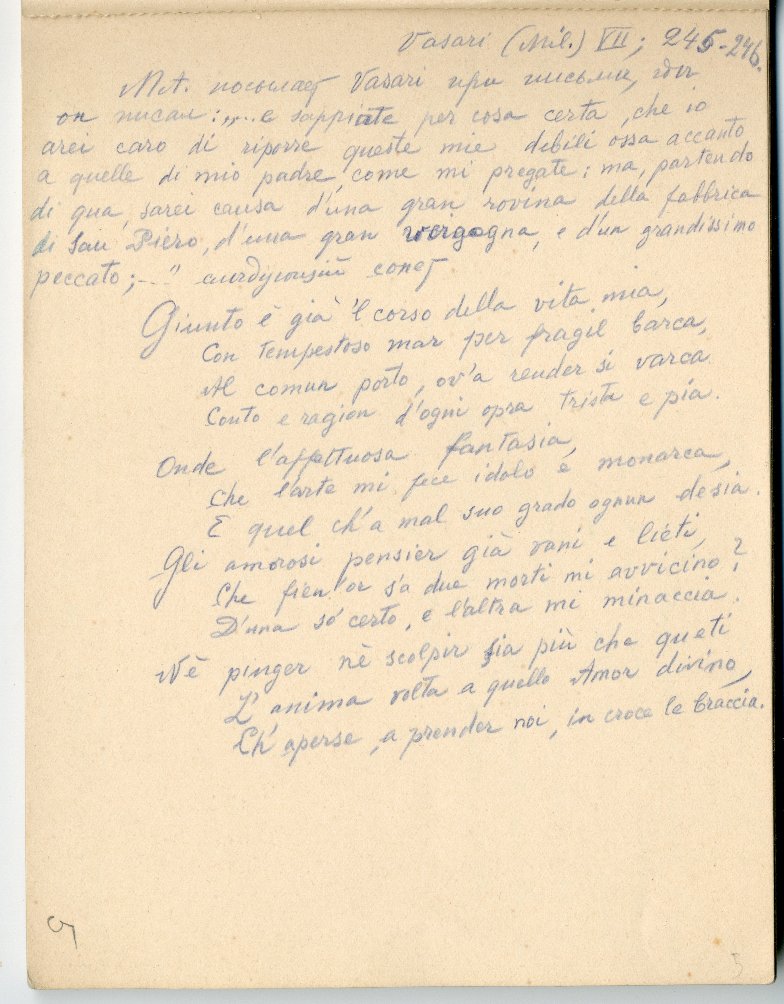 Vasari (Mil.) VII; 245-246.
М.А. посылает Vasari при письми, где
он писал: „... e sappiate per cosa certa, che io
arei caro di riporre queste mie debili ossa accanto
a quelle di mio padre, come mi pregate; ma, partendo
di qua, sarei causa d'una gran rovina della fabbrica
di San Piero, d'una gran vergogna, e d'un grandissimo
peccato; –..." следующий сонет
Giunto è già 'l corso della vita mia,
Con tempestoso mar per fragil barca,
Al comun porto, ov'a render si varca
Conto e ragion d'ogni opra trista e pia.
Onde l'affettuosa fantasia,
Che l'arte mi fece idolo e monarca,
E quel ch'a mal suo grado ognun desia.
Gli amorosi pensier già vani e lieti,
Che fien'or s'a due morti mi avvicino?
D'una so' certo, e l'altra mi minaccia.
Nè pinger nè scolpir fia più che queti
L'anima volta a quello Amor divino,
Ch'aperse, a prender noi, in croce le braccia.
5